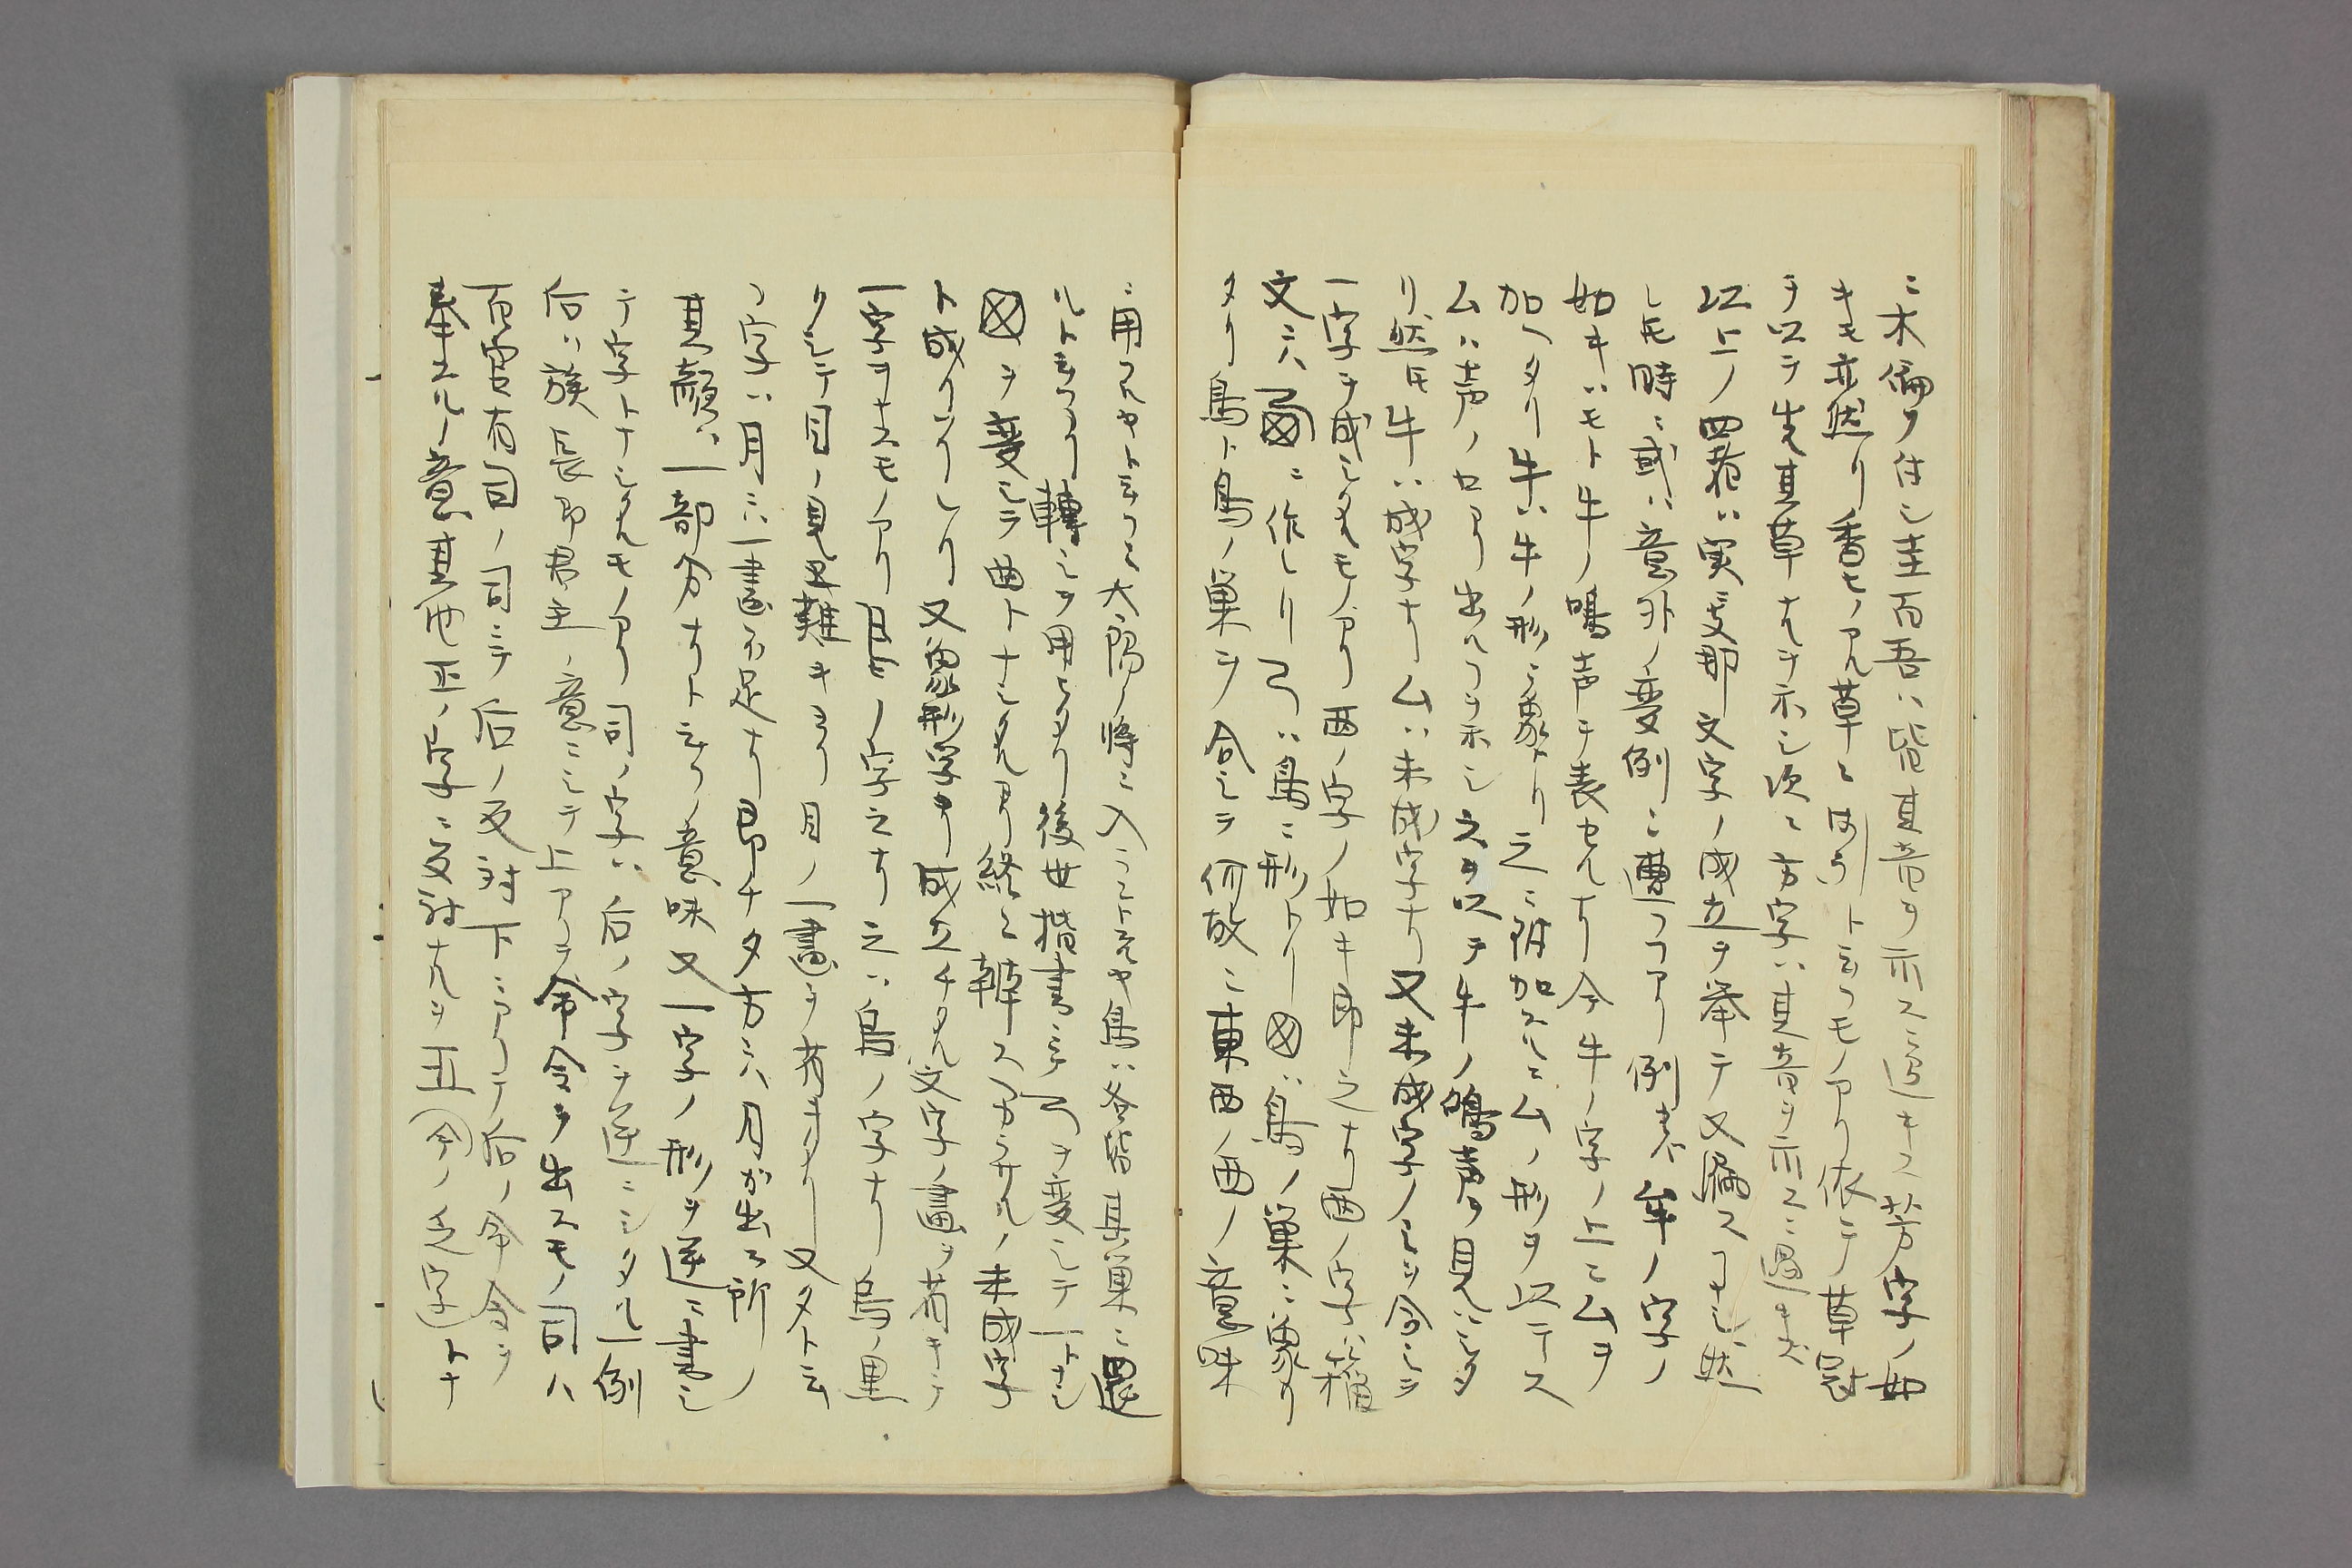 ニ木偏ヲ付シ圭百吾ハ皆其音ヲ示スニ過キス芳字ノ如
キモ亦然リ香モノアル草ニはうト云フモノアリ依テ草冠
ヲ以テ先其草ナルヲ示シ次ニ方字ハ其音ヲ示スニ過キス
以上ノ四者ハ実ニ支那文字ノ成立ヲ挙テ又漏スコナシ然
レ𪜈時ニ或ハ意外ノ変例ニ遭フコアリ例ヘハ牟ノ字ノ
如キハモト牛ノ鳴声ヲ表セルナリ今牛ノ字ノ上ニムヲ
加ヘタリ牛ハ牛ノ形ニ象タリ之ニ附加スルニムノ形ヲ以テス
ムハ声ノ口ヨリ出ルコヲ示シ之ヲ以テ牛ノ鳴声ヲ見ハシタ
リ然𪜈牛ハ成字ナリムハ未成字ナリ又未成字ノミヲ合シテ
一字ヲ成シタルモノアリ西ノ字ノ如キ即之ナリ西ノ字ハ籀
文ニハ ニ作レリ弓ハ鳥ニ形トリ ハ鳥ノ巣ニ象リ
タリ鳥ト鳥ノ巣ヲ合シテ何故ニ東西ノ西ノ意味
ニ用フルヤト云フニ太陽ノ将ニ入ラントスルヤ鳥ハ各皆其巣ニ還
ルト云フヨリ轉シテ用ヒタリ後世楷書ニテ弓ヲ変シテ一トナシ
 ヲ変シテ西トナシタルヨリ終ニ辨スヘカラサルノ未成字
ト成リタリシナリ又象形字ヨリ成立チタル文字ノ畫ヲ省キテ
一字ヲナスモノアリ烏ノ字之ナリ之ハ鳥ノ字ナリ烏ノ黒
クシテ目ノ見ヘ難キヨリ目ノ一畫ヲ省キタリ又夕ト云
フ字ハ月ニハ一畫不足ナリ即チ夕方ニハ月が出ル所ノ
其顔ハ一部分ナリト云フノ意味又一字ノ形ヲ逆ニ書シ
テ字トナシタルモノアリ司ノ字ハ后ノ字ヲ逆ニシタル一例
后ハ族長即君主ノ意ニシテ上アリテ命令ヲ出スモノ司ハ
百官有司ノ司ニテ后ノ反対下ニアリテ后ノ命令ヲ
奉スルノ意其他正ノ字ニ反対ナルヲ ノ乏字トナ